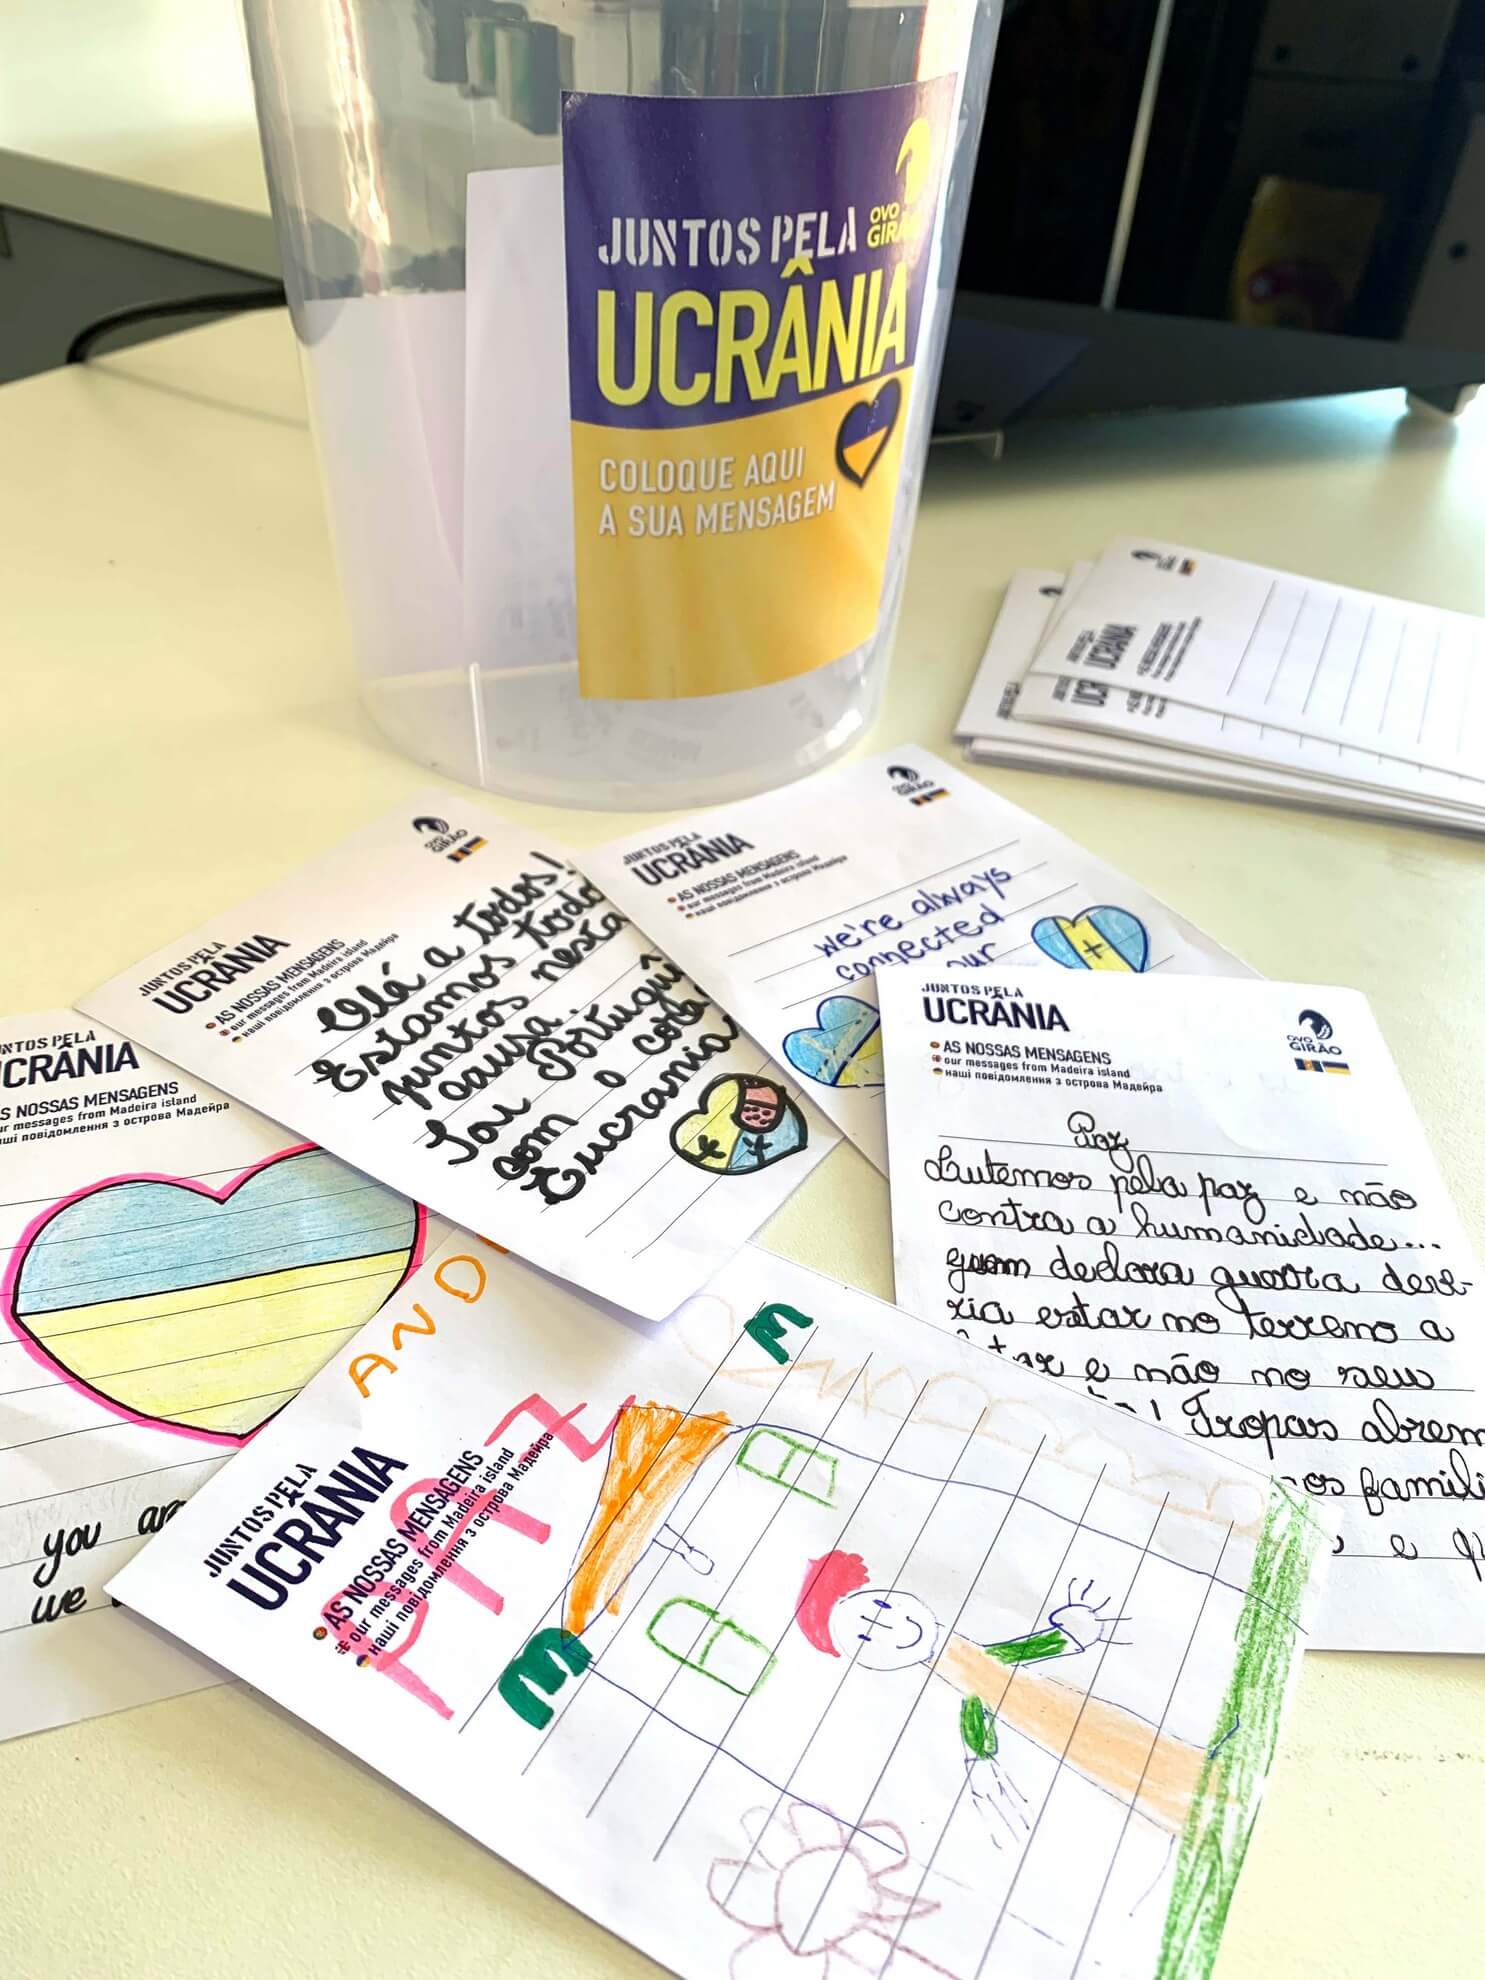 JUNTOS PELA
UCRÂNIA
OVO
GIRÃO
COLOQUE AQUI
A SUA MENSAGEM
UCRÂNIA
OVO
GIRÃO
JUNTOS PELA
UCRÂNIA
AS NOSSAS MENSAGENS
our messages from Madeira island
наші повідомлення з острова Мадейра
Olá a todos!
Estamos todo
juntos nesta
causa.
Sou Portuguê
com o cora
Eucrania
OVO
GIRÃO
JUNTOS PELA
UCRÂNIA
AS NOSSAS MENSAGENS
our messages from Madeira island
наші повідомлення з острова Мадейра
we're always
connected
JUNTOS PELA
UCRÂNIA
AS NOSSAS MENSAGENS
our messages from Madeira island
наші повідомлення з острова Мадейра
OVO
GIRÃO
Paz
Lutemos pela paz e não
contra a humanidade...
quem declara guerra deve-
ria estar no terreno a
e não no seu
Tropas abrem
os famili
e q
NTOS PELA
UCRÂNIA
S NOSSAS MENSAGENS
ur messages from Madeira island
аші повідомлення з острова Мадейра
you ar
we
JUNTOS PELA
UCRÂNIA
AS NOSSAS MENSAGENS
our messages from Madeira island
наші повідомлення з острова Мадейра
AND
PAZ
M
M